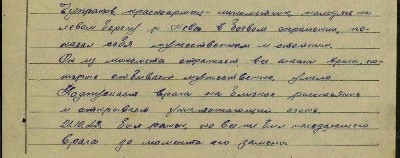 Бутраков, красноармеец-минометчик, находясь на
левом берегу р. Нева в боевом охранении, по-
казал себя мужественным и стойким.
Он из миномета отражает все атаки врага, ко-
торые отбивает мужественно, умело.
Подпускает врага на близкое расстояние
и открывает уничтожающий огонь.
21.10.42. был ранен, но все же бил наседающего
врага до момента его замены